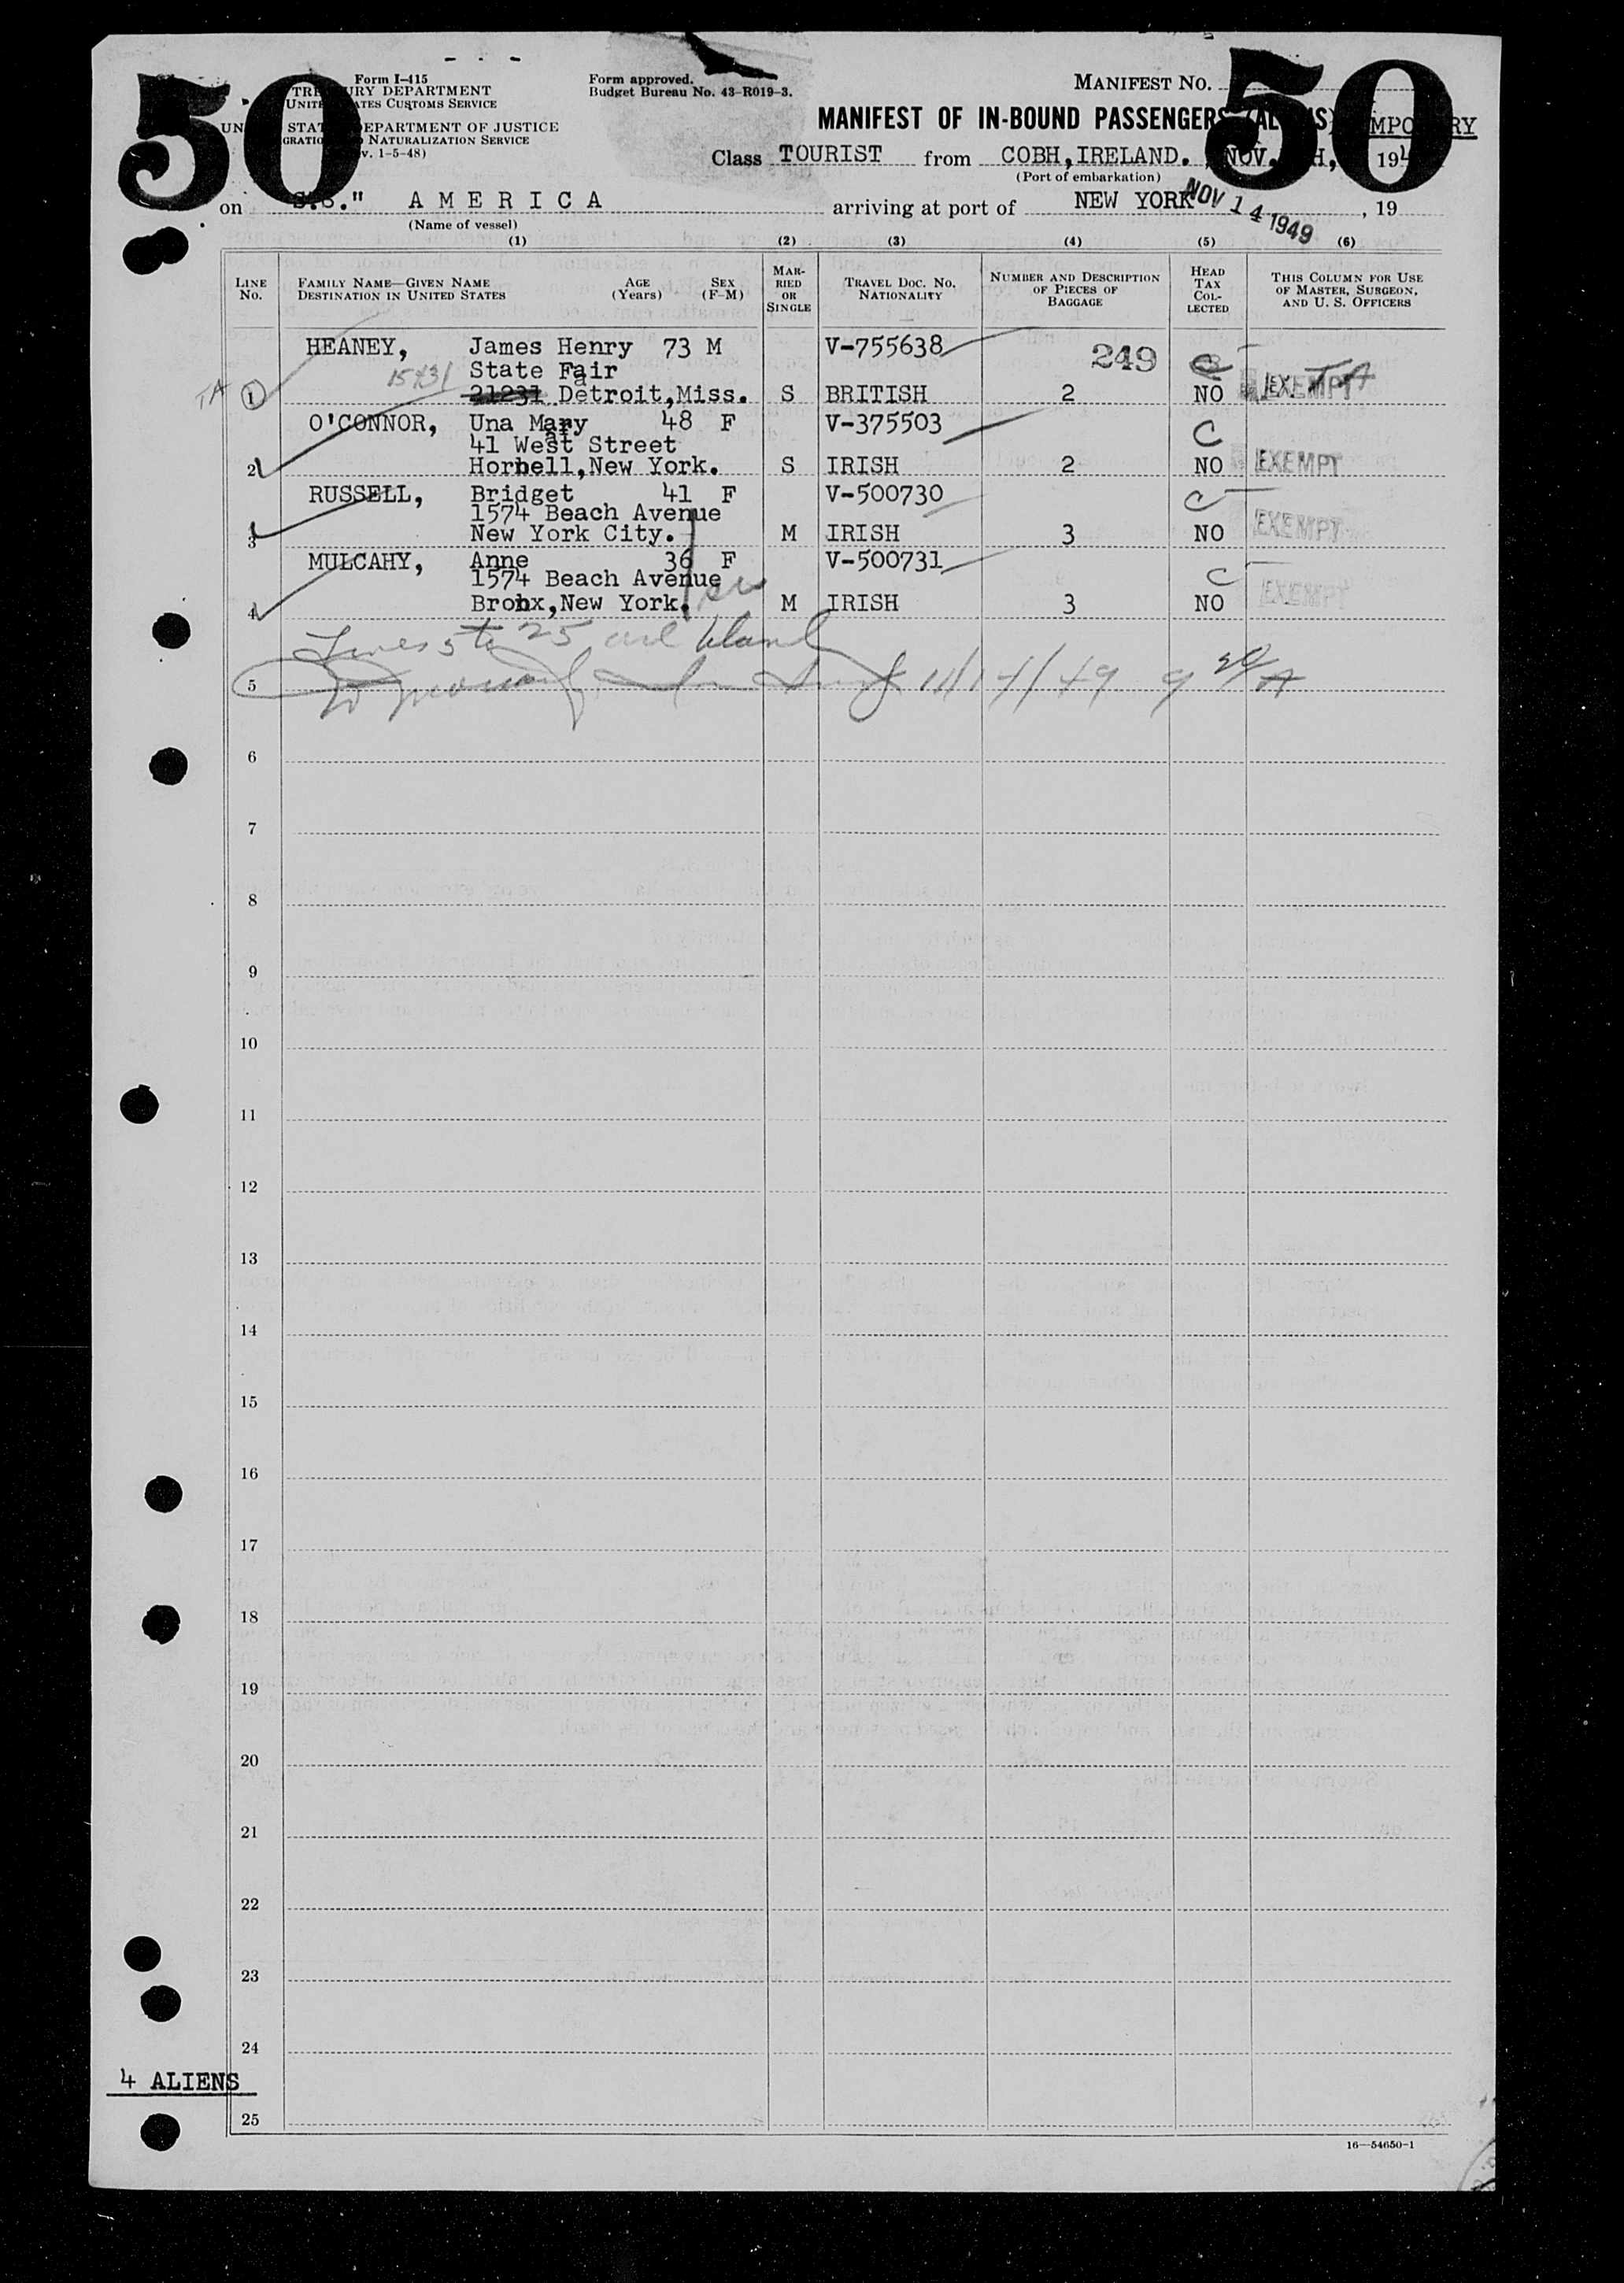 50 50
Form I-415
TREASURY DEPARTMENT
UNITED STATES CUSTOMS SERVICE
UNITED STATES DEPARTMENT OF JUSTICE
IMMIGRATION AND NATURALIZATION SERVICE
(Rev. 1-5-48)
Form approved.
Budget Bureau No. 43-R019-3.
MANIFEST NO.
MANIFEST OF IN-BOUND PASSENGERS (ALIENS) TEMPORARY
Class TOURIST from COBH, IRELAND. , NOV. H, 194
(Port of embarkation)
on S.S." A M E R I C A arriving at port of NEW YORK NOV 14 1949 , 19
(Name of vessel)
(1) (2) (3) (4) (5) (6)
LINE No. FAMILY NAME—GIVEN NAME DESTINATION IN UNITED STATES AGE (Years) SEX (F-M) MARRIED OR SINGLE TRAVEL DOC. NO. NATIONALITY NUMBER AND DESCRIPTION OF PIECES OF BAGGAGE HEAD TAX COLLECTED THIS COLUMN FOR USE OF MASTER, SURGEON, AND U. S. OFFICERS
HEANEY, James Henry 73 M V-755638 249
15431 State Fair
TA 1 21231 Detroit,Miss. S BRITISH 2 NO EXEMPT
O'CONNOR, Una Mary 48 F V-375503 C
41 West Street
2 Hornell,New York. S IRISH 2 NO EXEMPT
RUSSELL, Bridget 41 F V-500730 C
1574 Beach Avenue
3 New York City. M IRISH 3 NO EXEMPT
MULCAHY, Anne 36 F V-500731
1574 Beach Avenue C
4 Bronx,New York. M IRISH 3 NO EXEMPT
Lines 5 to 25 are blank
5 11/14/49 9 30/A
6
7
8
9
10
11
12
13
14
15
16
17
18
19
20
21
22
23
24
4 ALIENS
25
16—54650-1